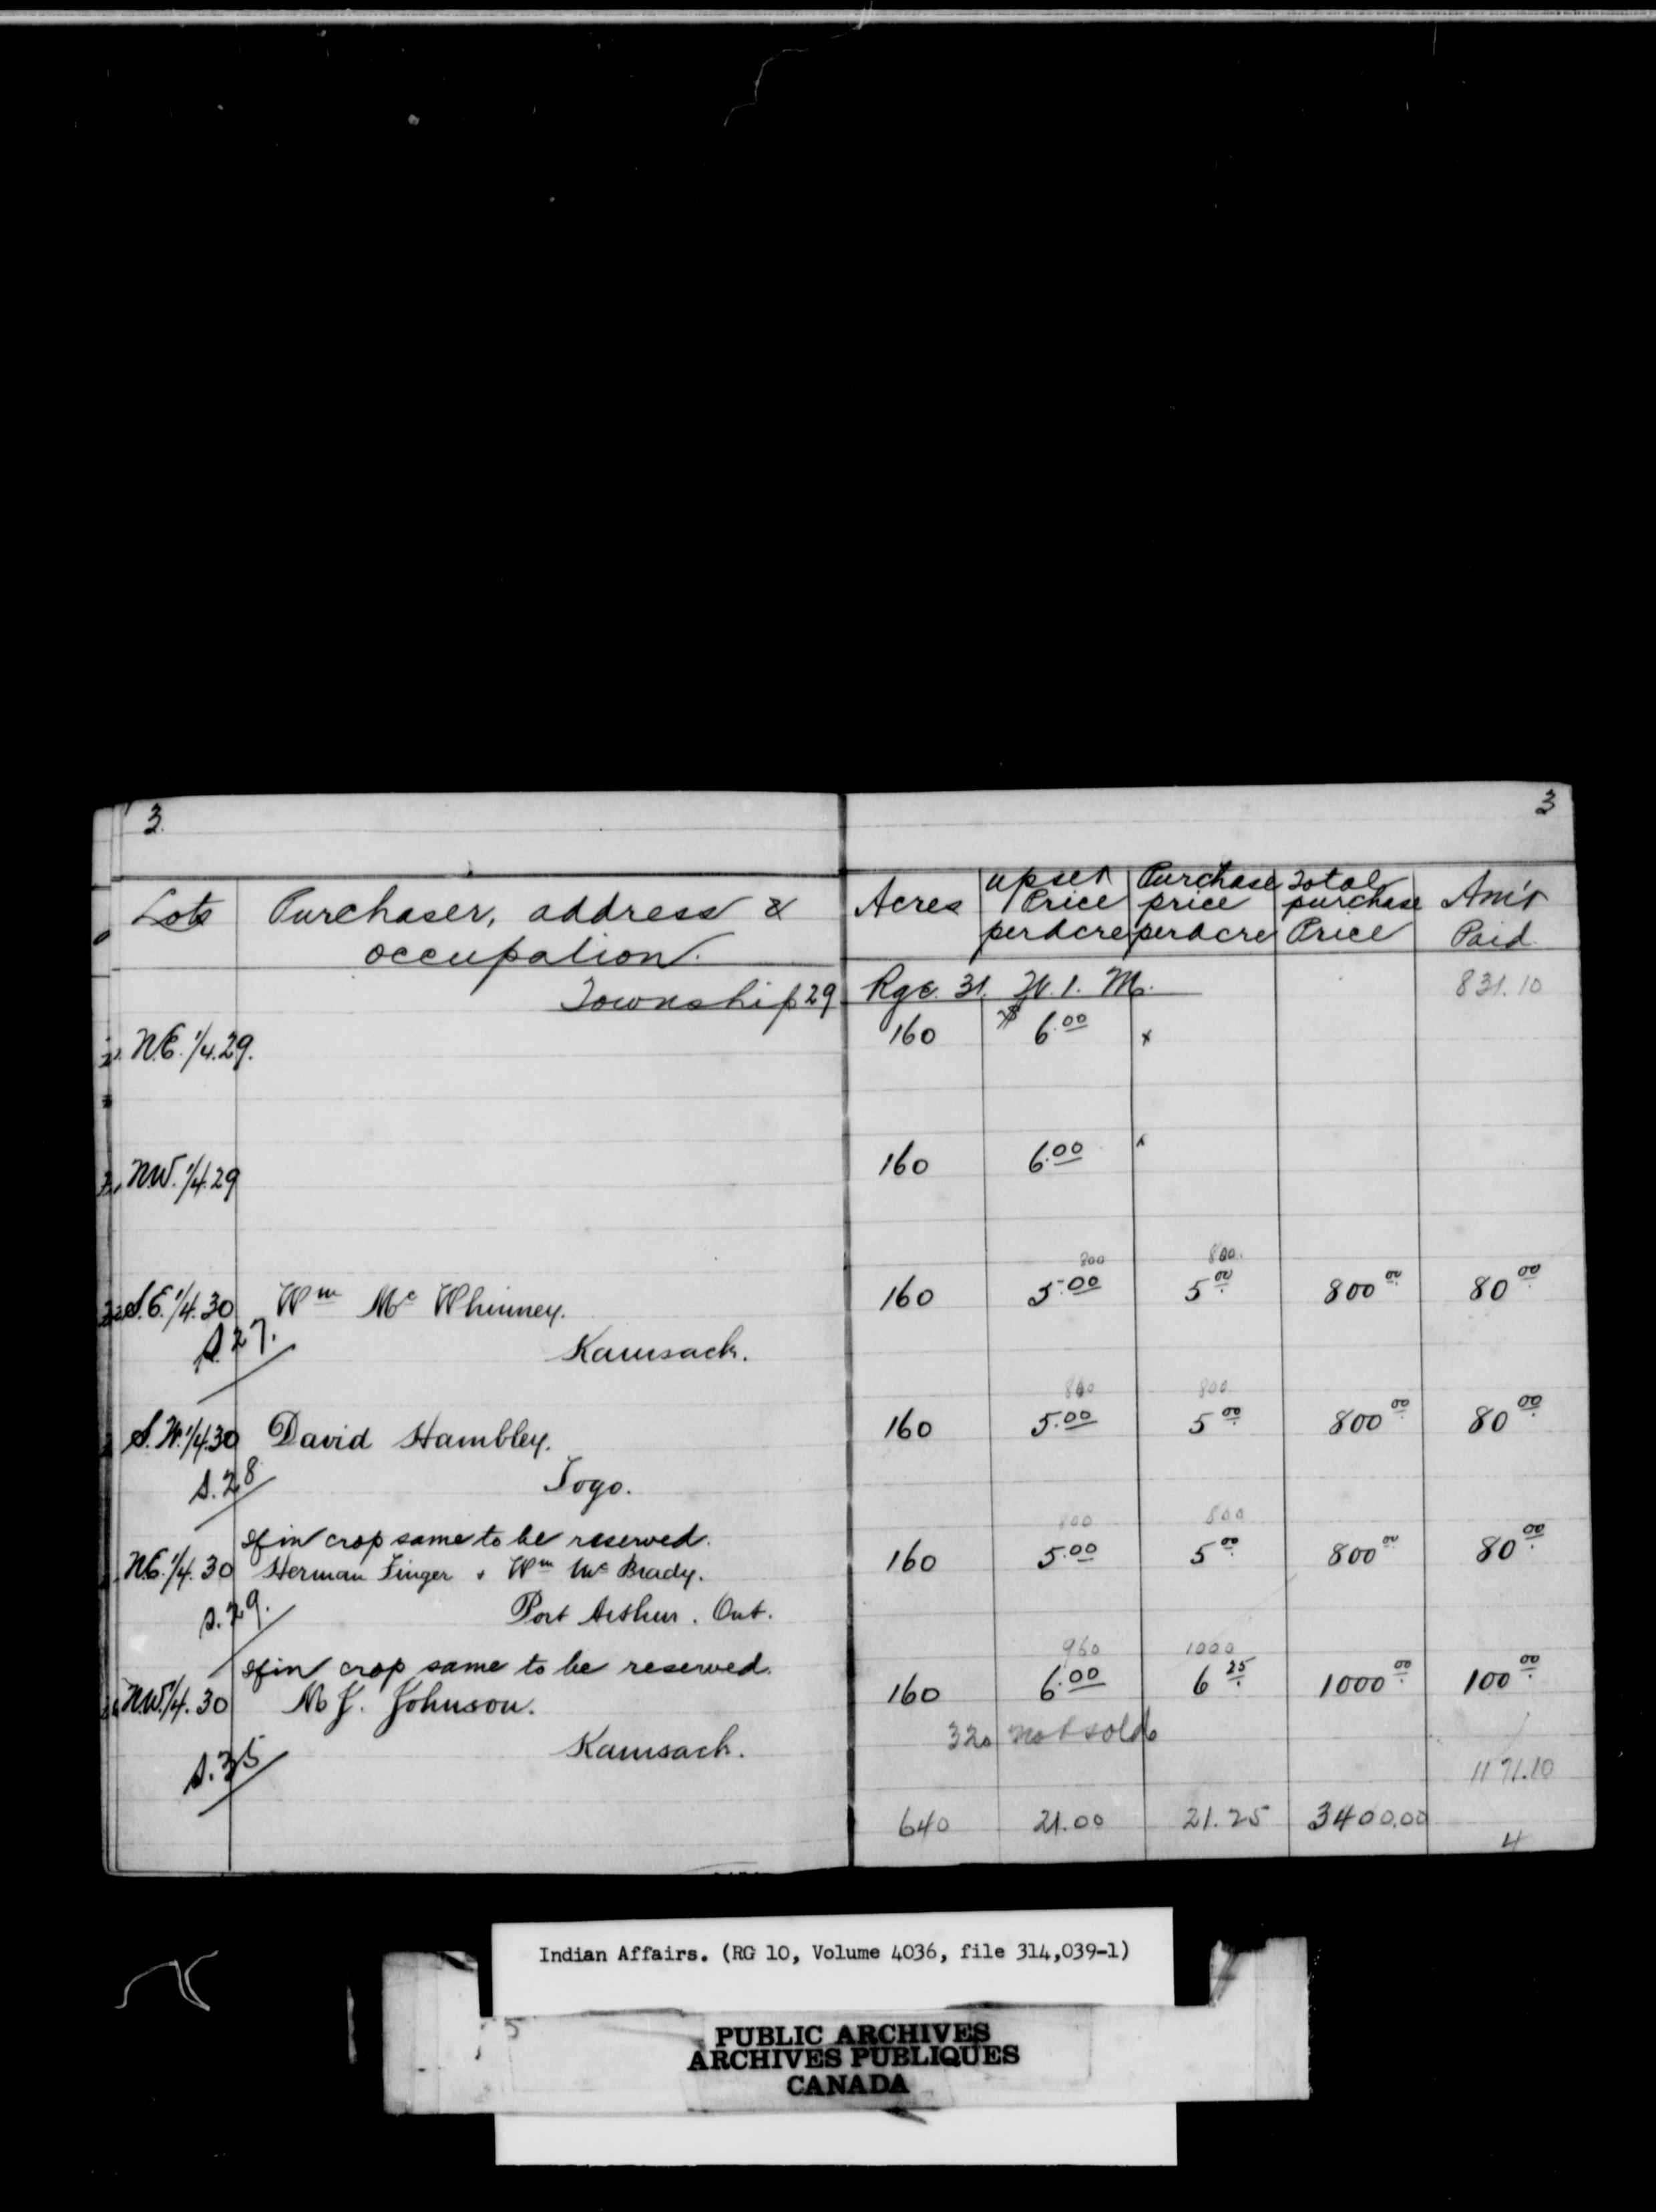 3 3
Lots Purchaser, address & occupation. Acres upset Price per Acre Purchase price per Acre Total purchase Price Am't Paid
Township 29 Rge. 31. W. 1. M. 831.10
N.E. 1/4. 29. 160 $ 6.00 x
N.W. 1/4. 29 160 6.00 x
800 800.
S.E. 1/4. 30 Wm Mc Whinney. 160 5.00 5.00 800.00 80.00
S. 27. Kamsack.
800 800
S.W. 1/4 30 David Hambley. 160 5.00 5.00 800.00 80.00
S. 28 Togo.
If in crop same to be reserved. 800 800
N.E. 1/4. 30 Herman Finger & Wm Mc Brady. 160 5.00 5.00 800.00 80.00
S. 29. Port Arthur. Ont.
If in crop same to be reserved. 960 1000
N.W. 1/4. 30 M J. Johnson. 160 6.00 6.25 1000.00 100.00
320 not sold
S. 35 Kamsack.
1171.10
640 21.00 21.25 3400.00
4
Indian Affairs. (RG 10, Volume 4036, file 314,039-1)
PUBLIC ARCHIVES
ARCHIVES PUBLIQUES
CANADA